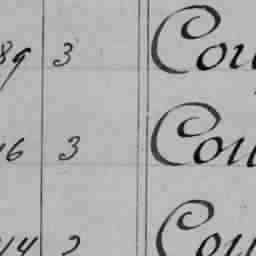 89 3 Cou
46 3 Cou
44 2 Cou